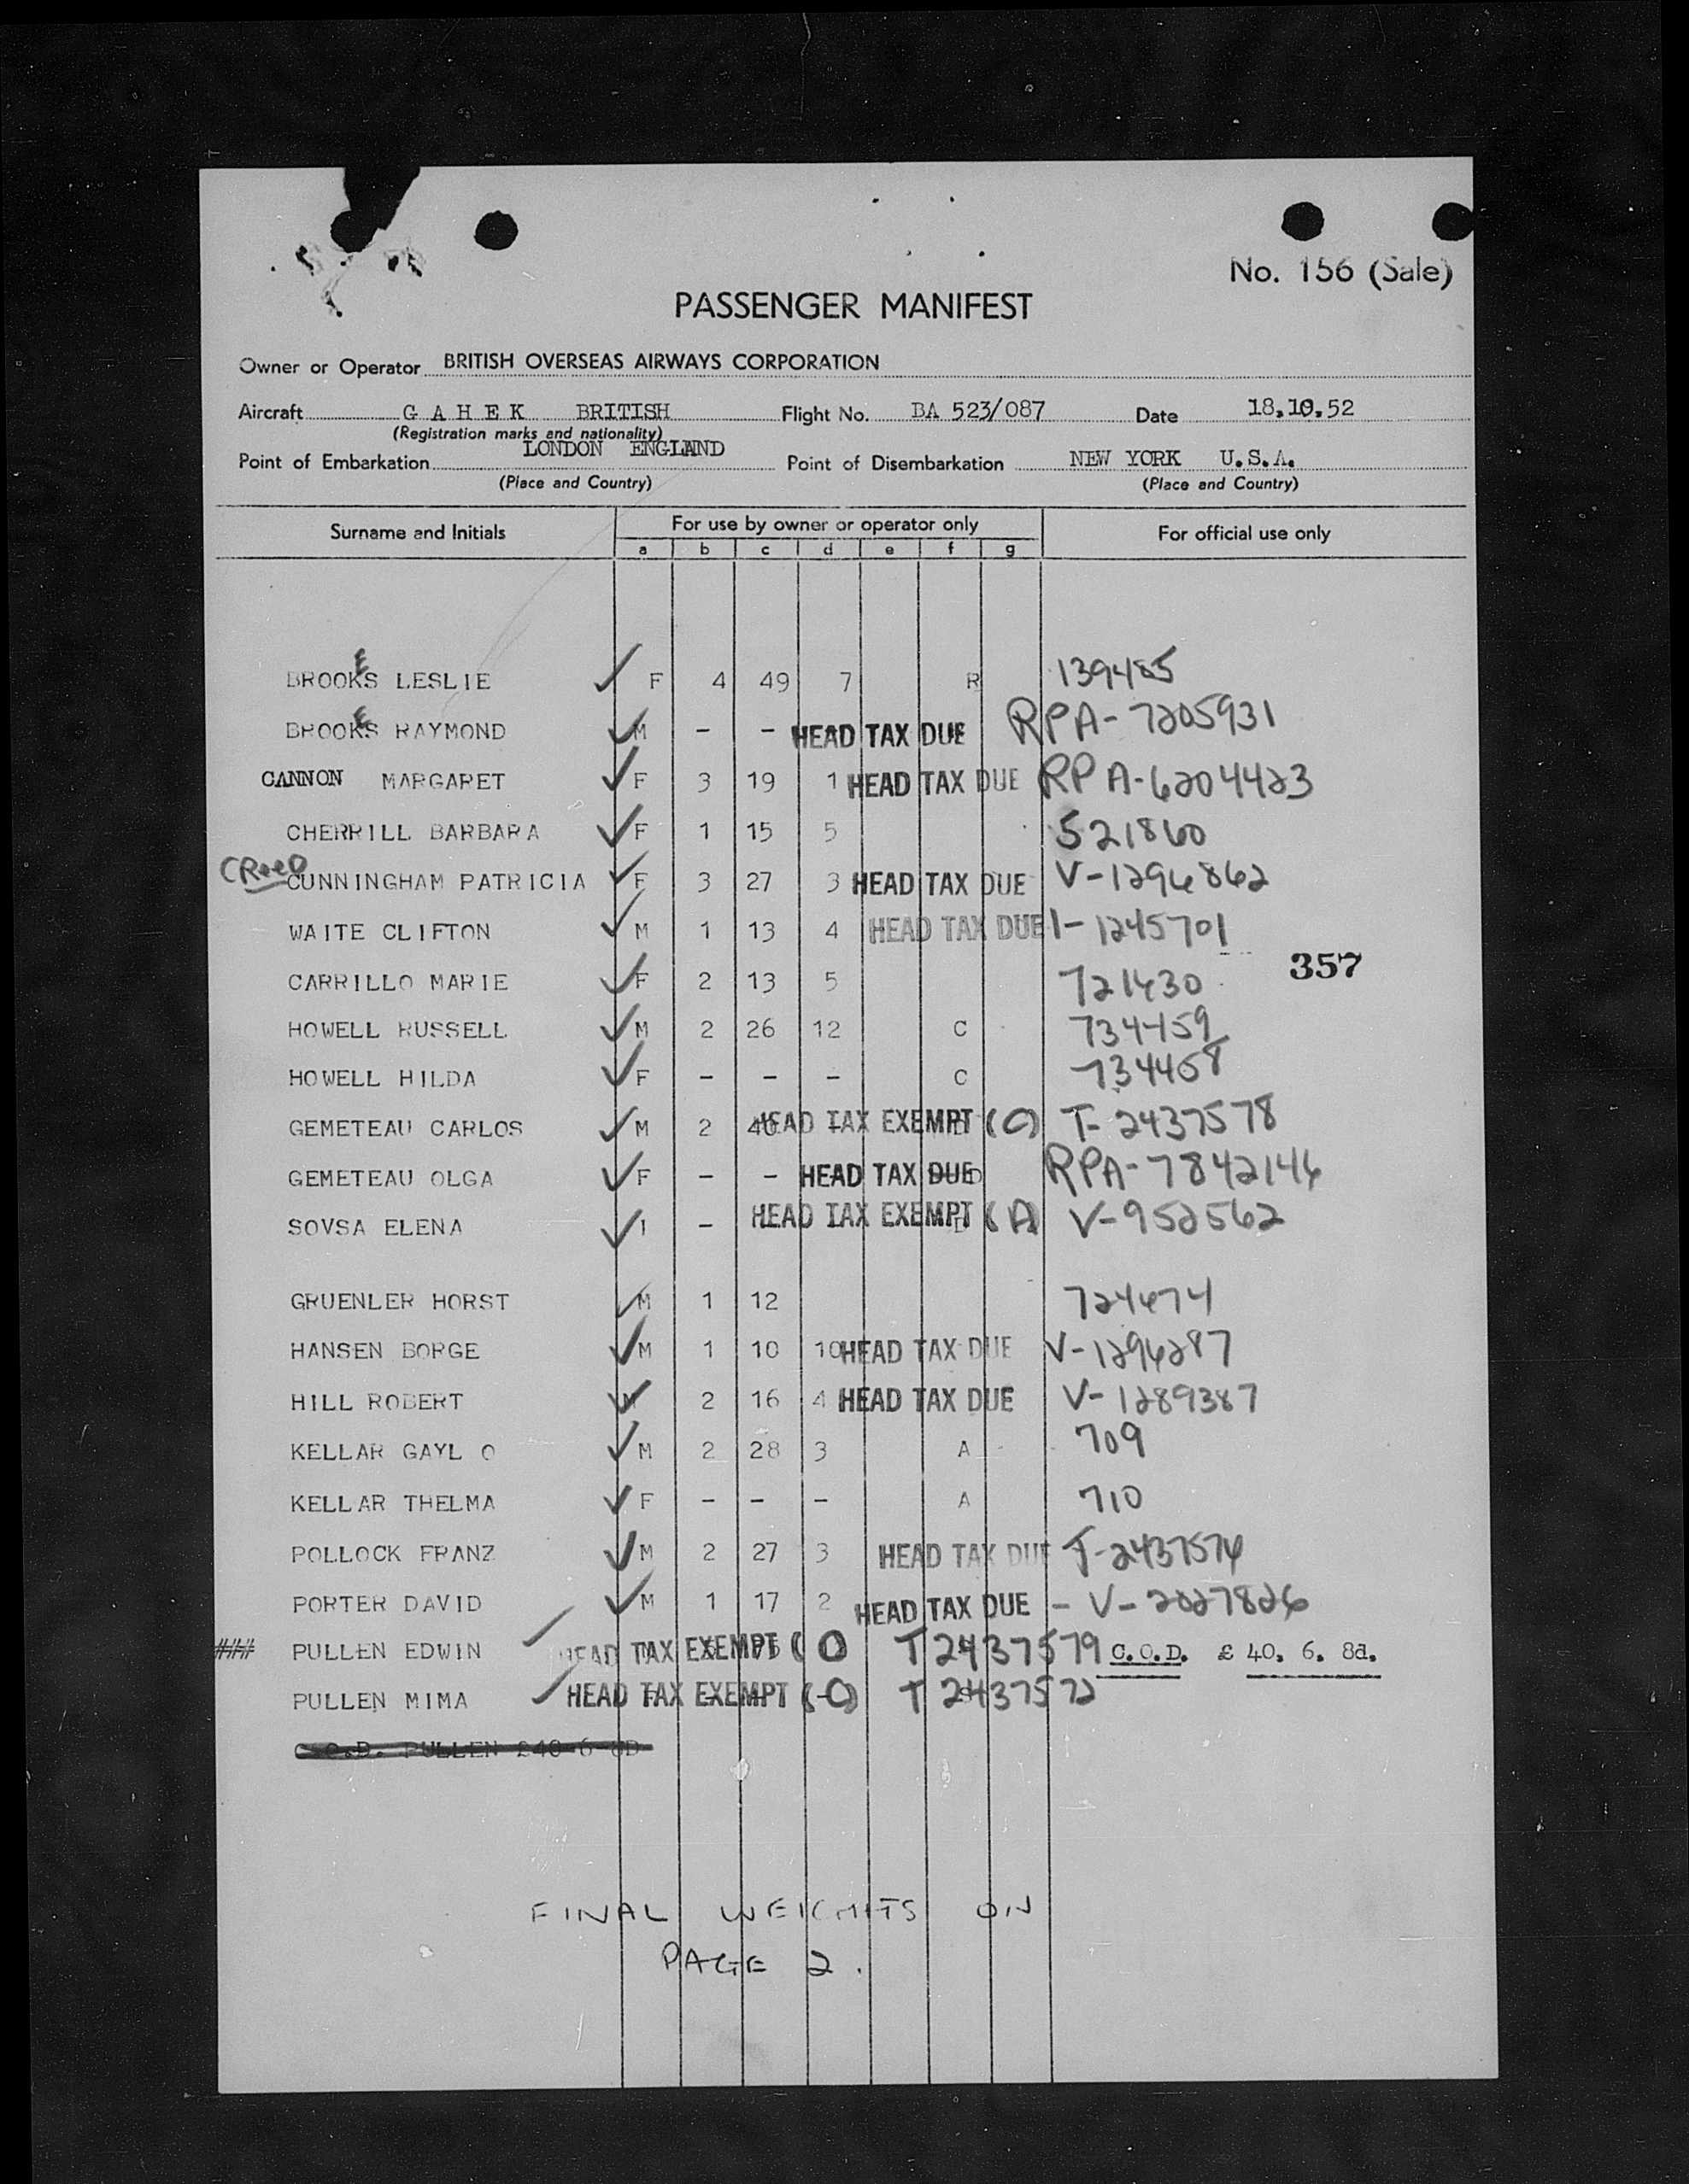 No. 156 (Sale)
PASSENGER MANIFEST
Owner or Operator BRITISH OVERSEAS AIRWAYS CORPORATION
Aircraft G A H E K BRITISH Flight No. BA 523/087 Date 18.10.52
(Registration marks and nationality)
Point of Embarkation LONDON ENGLAND Point of Disembarkation NEW YORK U.S.A.
(Place and Country) (Place and Country)
Surname and Initials For use by owner or operator only For official use only
a b c d e f g
E
BROOKS LESLIE ✓ F 4 49 7 R 139485
E
BROOKS RAYMOND ✓ M - - HEAD TAX DUE RPA-7205931
CANNON MARGARET ✓ F 3 19 1 HEAD TAX DUE RPA-6204423
CHERRILL BARBARA ✓ F 1 15 5 521860
CReeD
CUNNINGHAM PATRICIA ✓ F 3 27 3 HEAD TAX DUE V-1296862
WAITE CLIFTON ✓ M 1 13 4 HEAD TAX DUE I-1245701
357
CARRILLO MARIE ✓ F 2 13 5 721430
HOWELL RUSSELL ✓ M 2 26 12 C 734459
HOWELL HILDA ✓ F - - - C 734458
GEMETEAU CARLOS ✓ M 2 40 HEAD TAX EXEMPT (C) T-2437578
GEMETEAU OLGA ✓ F - - HEAD TAX DUE RPA-7842146
SOVSA ELENA ✓ I - HEAD TAX EXEMPT (A) V-952562
GRUENLER HORST ✓ M 1 12 724674
HANSEN BORGE ✓ M 1 10 10 HEAD TAX DUE V-1296287
HILL ROBERT ✓ M 2 16 4 HEAD TAX DUE V-1289387
KELLAR GAYL O ✓ M 2 28 3 A 709
KELLAR THELMA ✓ F - - - A 710
POLLOCK FRANZ ✓ M 2 27 3 HEAD TAX DUE T-2437576
PORTER DAVID ✓ M 1 17 2 HEAD TAX DUE - V-2027826
### PULLEN EDWIN ✓ HEAD TAX EXEMPT (C) T2437579 C.O.D. £ 40. 6. 8d.
PULLEN MIMA ✓ HEAD TAX EXEMPT (C) T2437572
C.O.D. PULLEN £40-6-8D
FINAL WEIGHTS ON
PAGE 2.